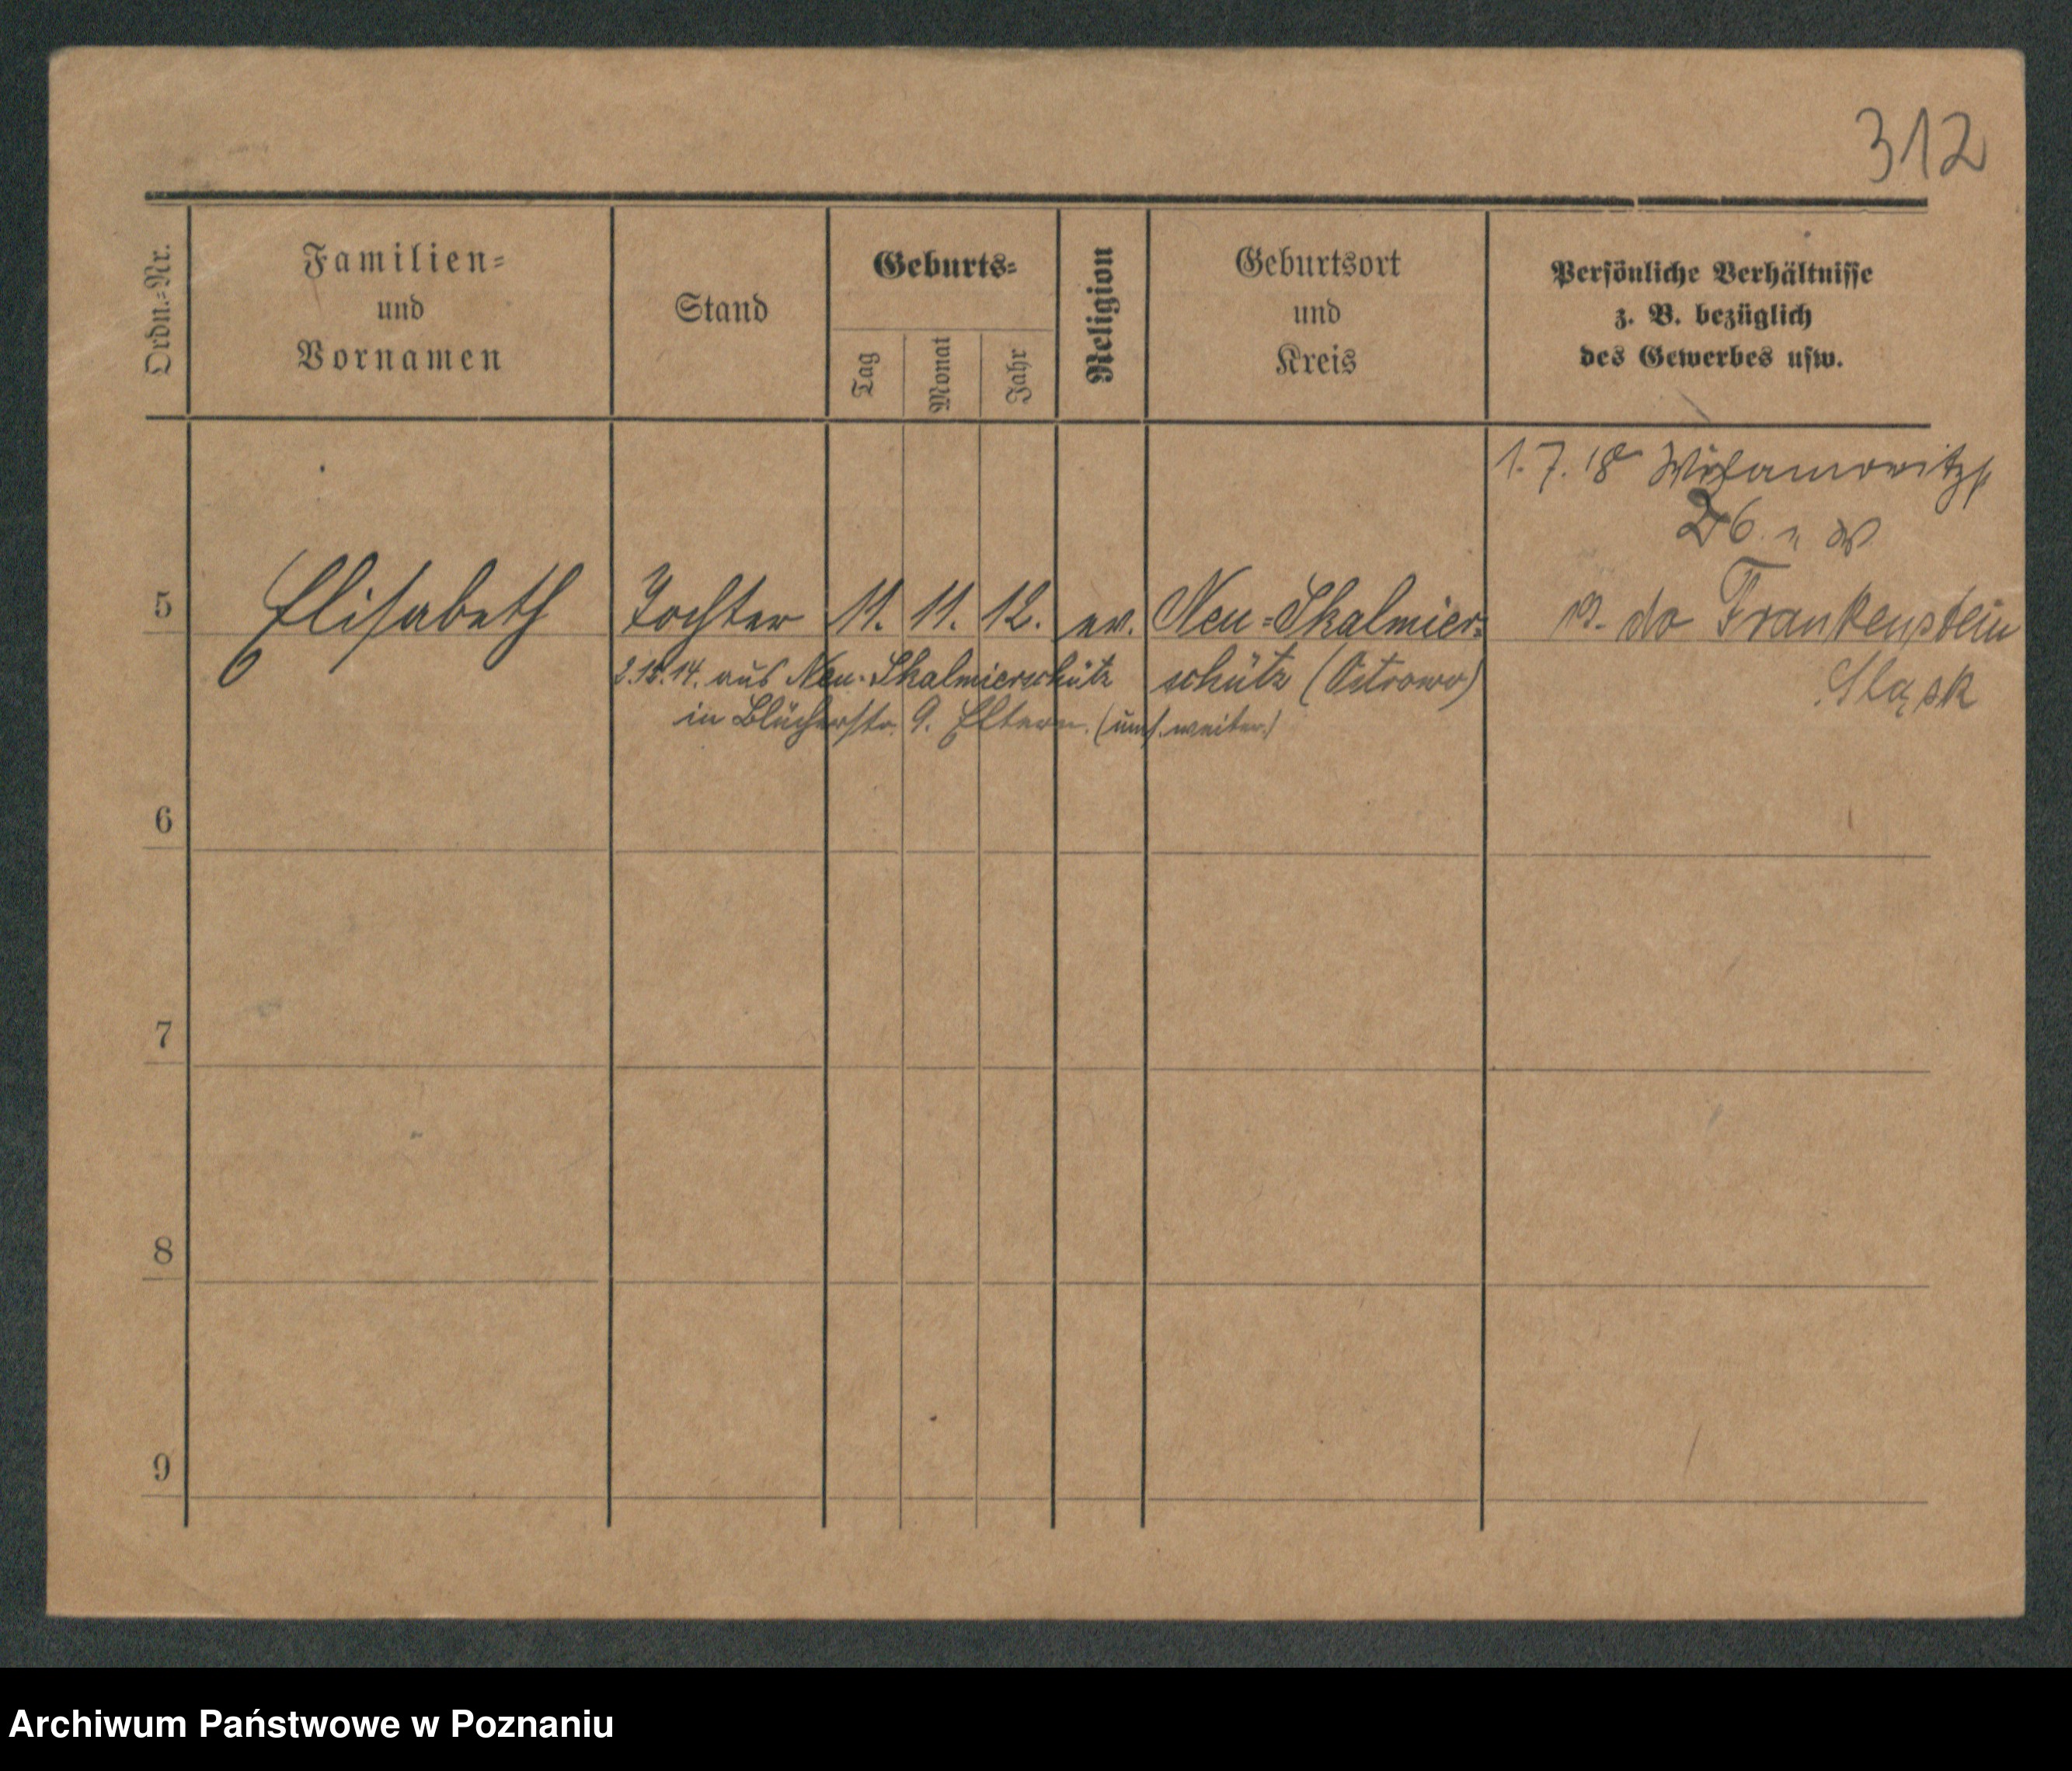 312
Ordn.-Nr.
Familien-
und
Vornamen
Stand
Geburts-
Tag
Monat
Jahr
Religion
Geburtsort
und
Kreis
Persönliche Verhältnisse
z. B. bezüglich
des Gewerbes usw.
1. 7. 18
26
5 Elisabeth Tochter 11. 11. 12. ev. Neu-Skalmier- do Frankenstein
2.12.14. aus Neu-Skalmierschütz schütz (Ostrowo) Sląsk
in Blücherstr. 9. Eltern. weiter.)
6
7
8
9
Archiwum Państwowe w Poznaniu